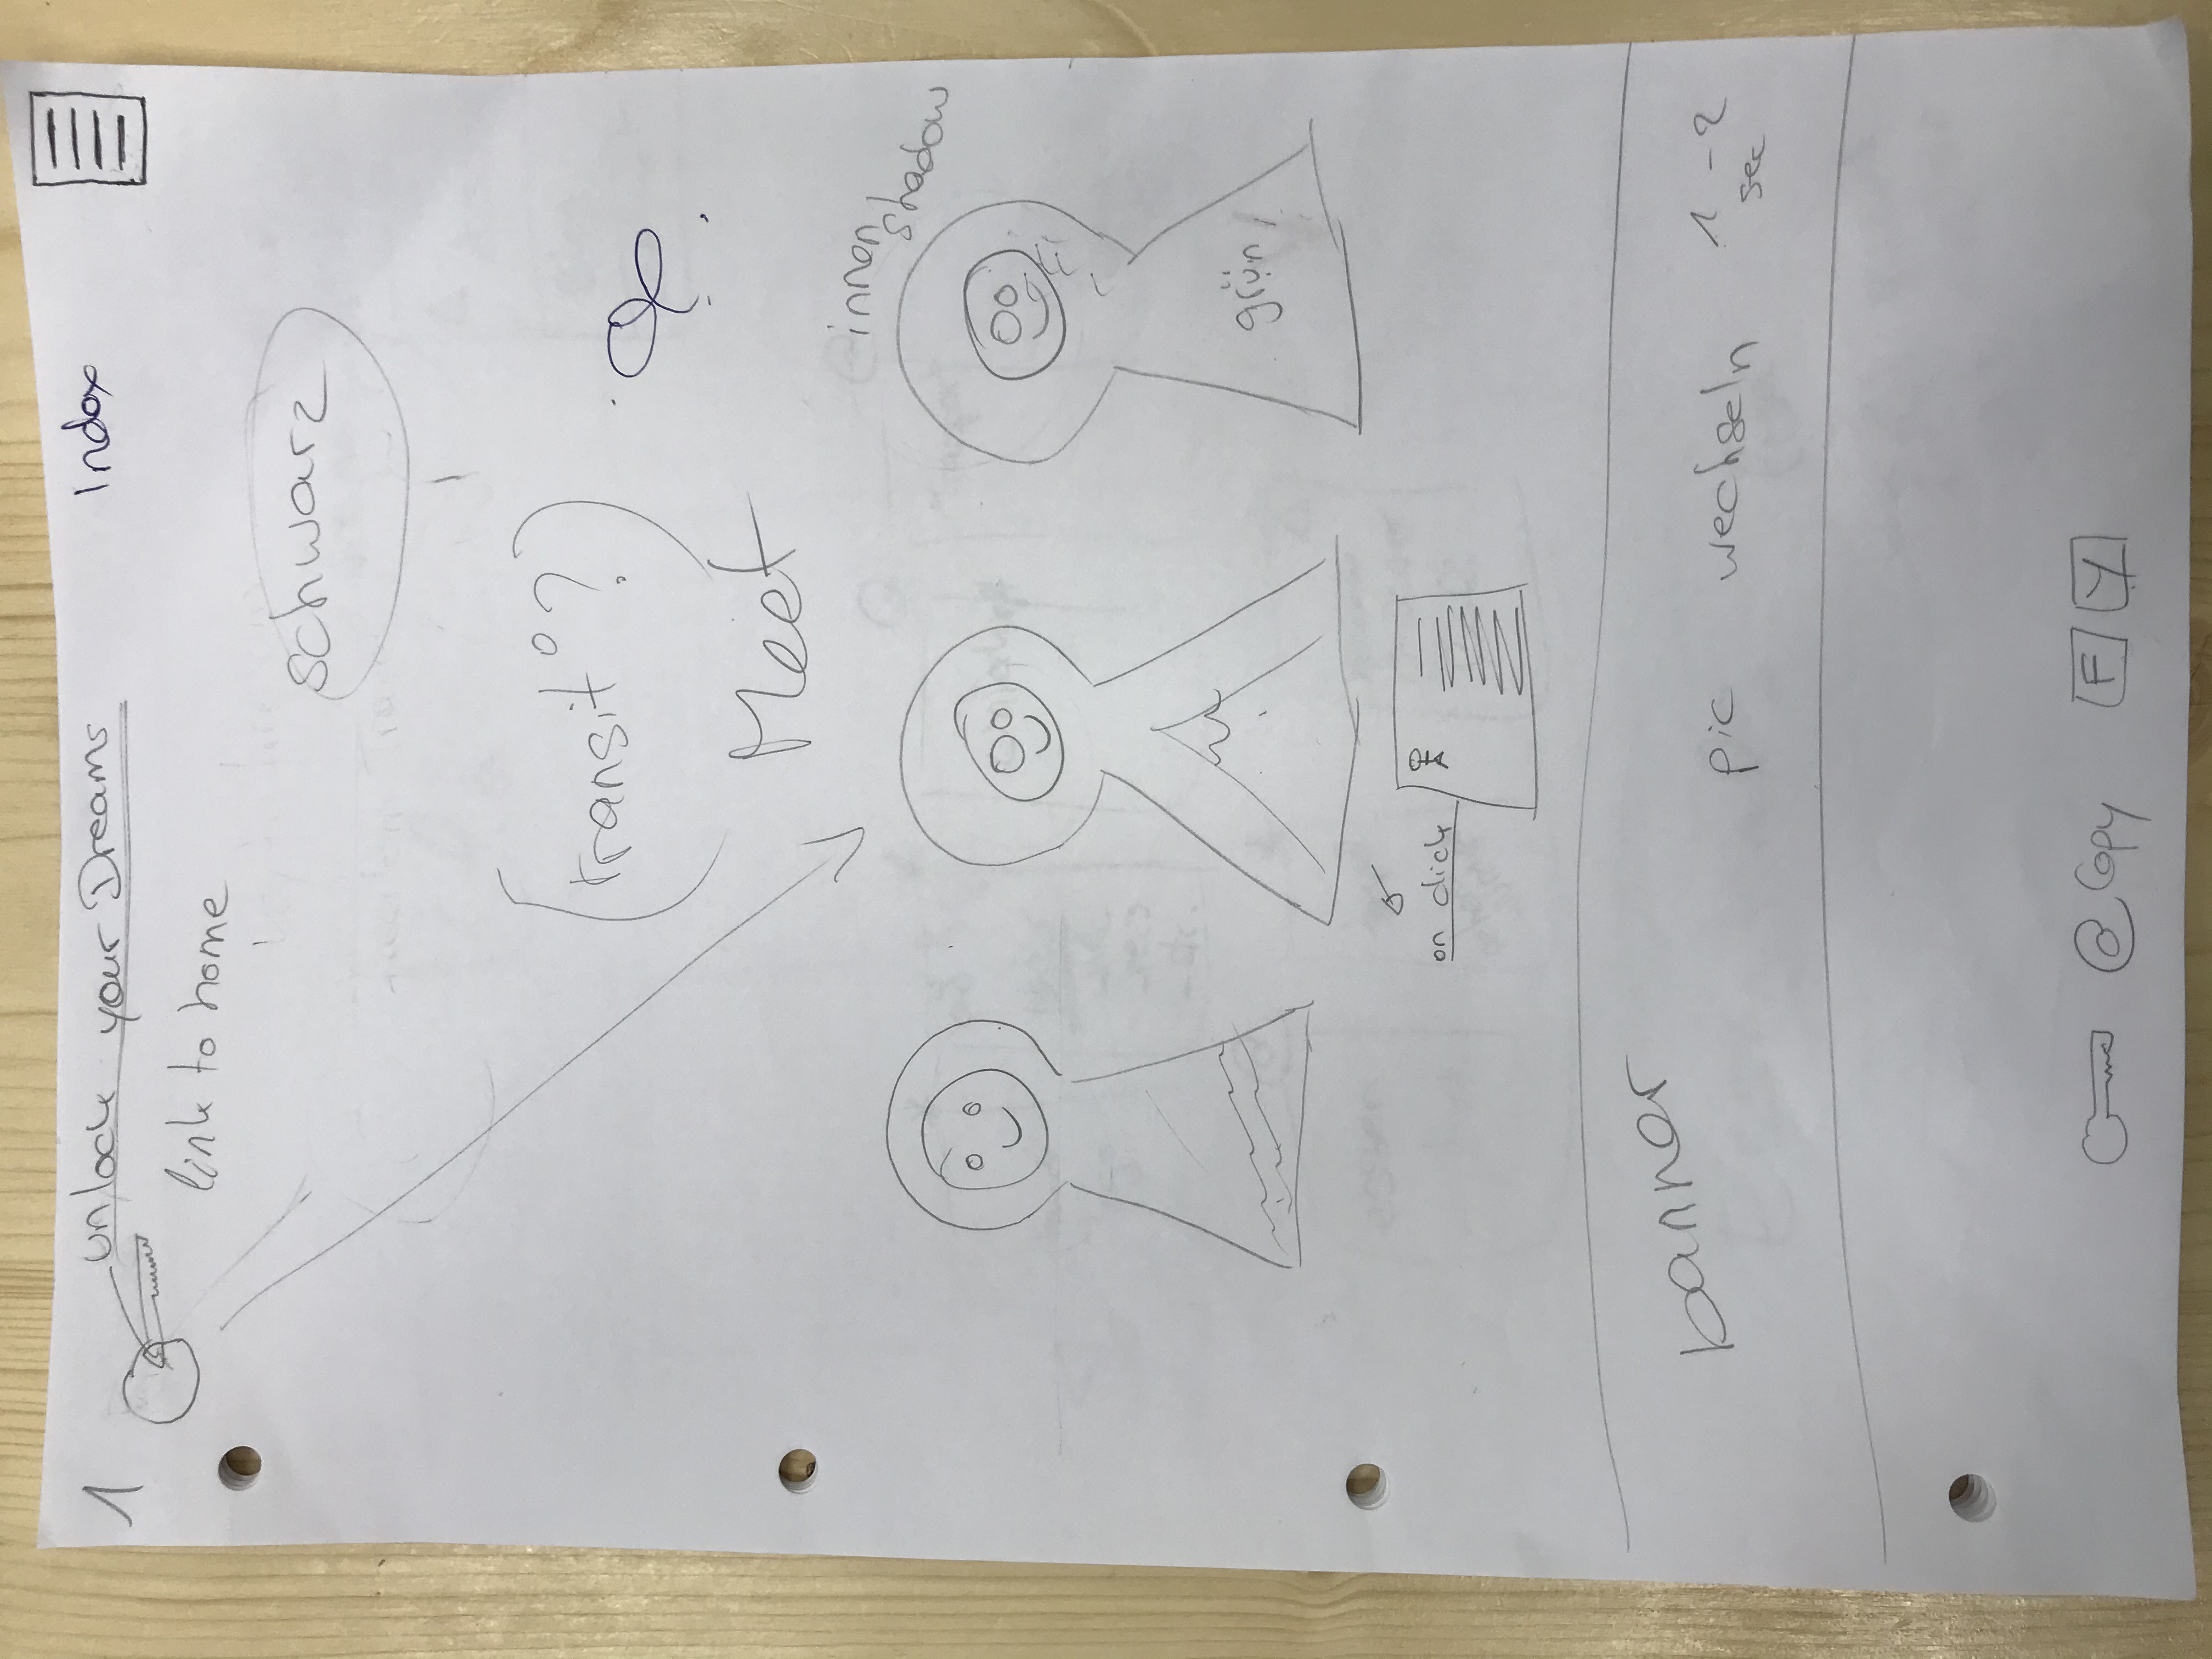 1
unlock your Dreams
Index
link to home
schwarz
(transit° ?)
Meet
innen
shadow
grün
on click
banner
pic wechseln 1-2
sec
@ Copy F Y